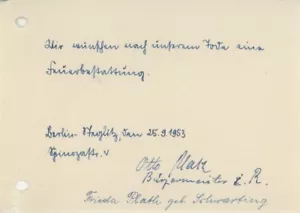 Wir wünschen nach unserem Tode eine
Feuerbestattung.
Berlin-Steglitz, den 25.9.1953
Spinozastr. V
Otto Plath
Bürgermeister z. R.
Frieda Plath geb. Schwartzing